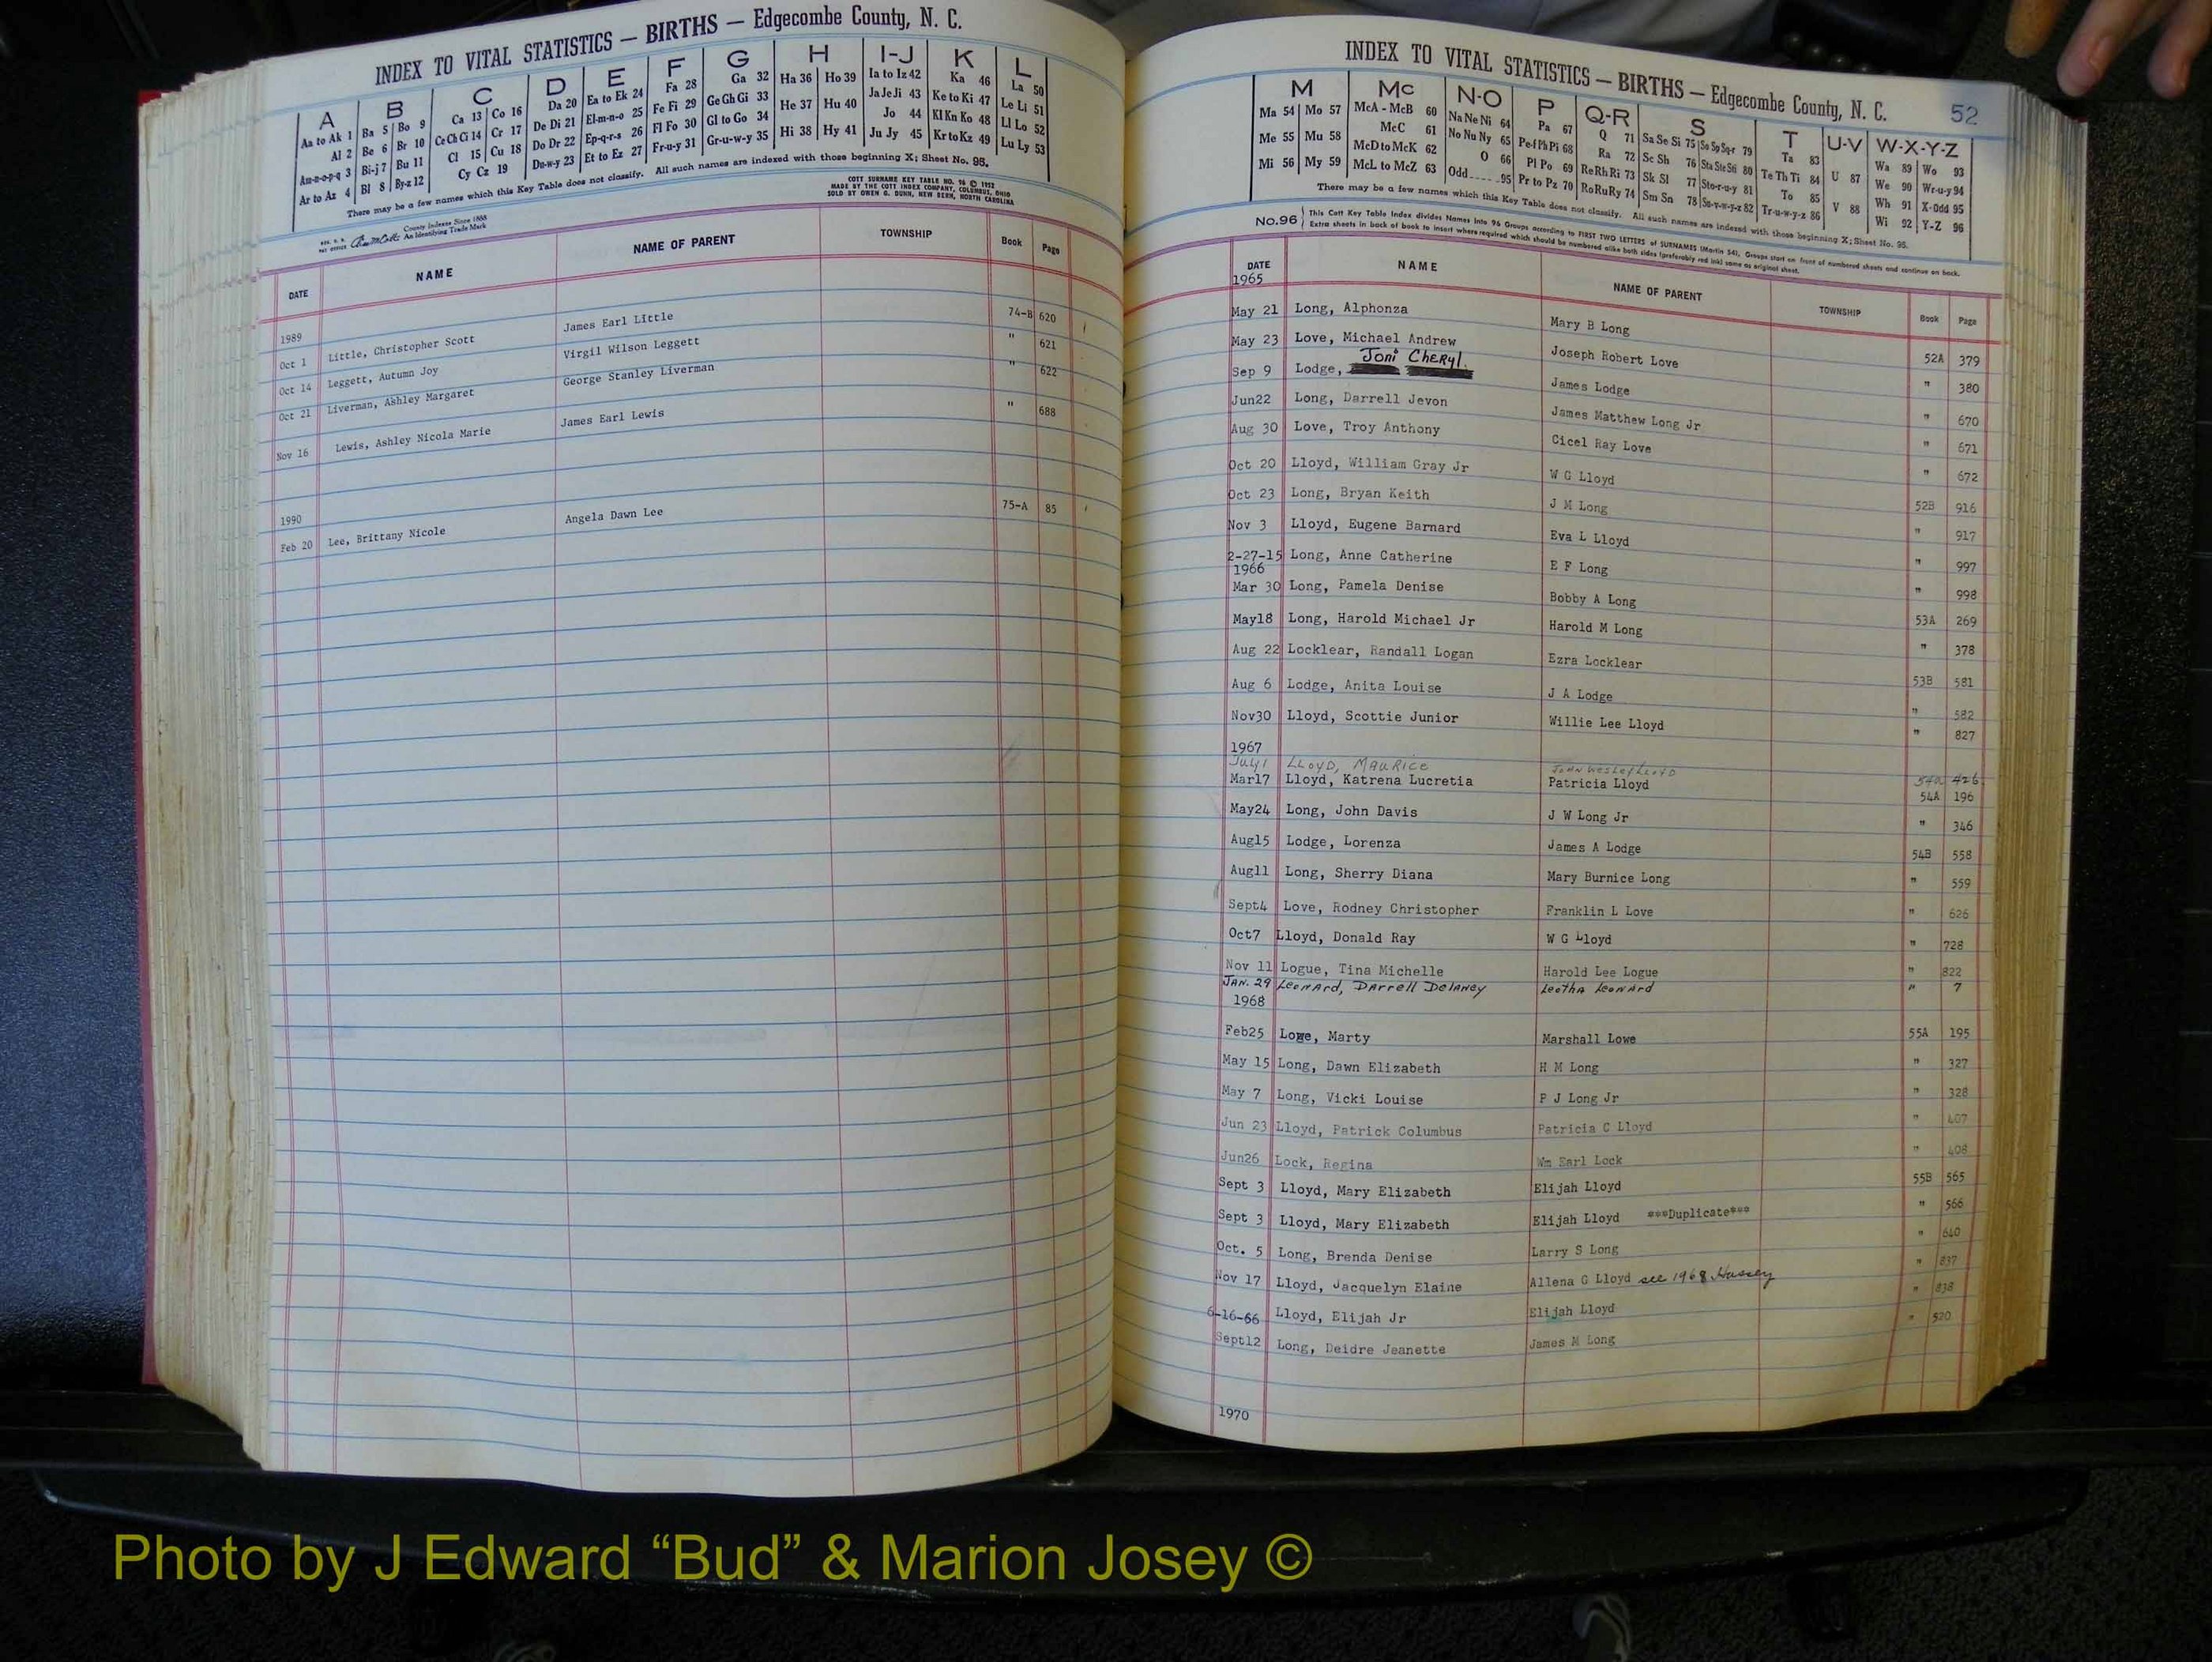 INDEX TO VITAL STATISTICS — BIRTHS — Edgecombe County, N. C.
A B C D E F G H I-J K L
Aa to Ak 1 Ba 5 Bo 9 Ca 13 Co 16 Da 20 Ea to Ek 24 Fa 28 Ga 32 Ha 36 Ho 39 Ia to Iz 42 Ka 46 La 50
Al 2 Be 6 Br 10 Ce Ch Ci 14 Cr 17 De Di 21 El-m-n-o 25 Fe Fi 29 Ge Gh Gi 33 He 37 Hu 40 Ja Je Ji 43 Ke to Ki 47 Le Li 51
Am-n-o-p-q 3 Bi-j 7 Bu 11 Cl 15 Cu 18 Do Dr 22 Ep-q-r-s 26 Fl Fo 30 Gl to Go 34 Hi 38 Hy 41 Jo 44 Kl Kn Ko 48 Ll Lo 52
Ar to Az 4 Bl 8 By-z 12 Cy Cz 19 Du-w-y 23 Et to Ez 27 Fr-u-y 31 Gr-u-w-y 35 Ju Jy 45 Kr to Kz 49 Lu Ly 53
There may be a few names which this Key Table does not classify. All such names are indexed with those beginning X; Sheet No. 95.
County Indexes Since 1888
An Identifying Trade Mark
COTT SURNAME KEY TABLE NO. 96 © 1952
MADE BY THE COTT INDEX COMPANY, COLUMBUS, OHIO
SOLD BY OWEN G. DUNN, NEW BERN, NORTH CAROLINA
DATE NAME NAME OF PARENT TOWNSHIP Book Page
1989
Oct 1 Little, Christopher Scott James Earl Little 74-B 620
Oct 14 Leggett, Autumn Joy Virgil Wilson Leggett " 621
Oct 21 Liverman, Ashley Margaret George Stanley Liverman " 622
Nov 16 Lewis, Ashley Nicola Marie James Earl Lewis " 688
1990
Feb 20 Lee, Brittany Nicole Angela Dawn Lee 75-A 85
INDEX TO VITAL STATISTICS — BIRTHS — Edgecombe County, N. C. 52
M Mc N-O P Q-R S T U-V W-X-Y-Z
Ma 54 Mo 57 McA - McB 60 Na Ne Ni 64 Pa 67 Q 71 Sa Se Si 75 So Sp Sq-r 79 Ta 83 U 87 Wa 89 Wo 93
Me 55 Mu 58 McC 61 No Nu Ny 65 Pe-f Ph Pi 68 Ra 72 Sc Sh 76 Sta Ste Sti 80 Te Th Ti 84 V 88 We 90 Wr-u-y 94
Mi 56 My 59 McD to McK 62 O 66 Pl Po 69 Re Rh Ri 73 Sk Sl 77 Sto-r-u-y 81 To 85 Wh 91 X-Odd 95
McL to McZ 63 Odd 95 Pr to Pz 70 Ro Ru Ry 74 Sm Sn 78 Su-v-w-y-z 82 Tr-u-w-y-z 86 Wi 92 Y-Z 96
There may be a few names which this Key Table does not classify. All such names are indexed with those beginning X; Sheet No. 95.
No. 96 This Cott Key Table Index divides Names into 96 Groups according to FIRST TWO LETTERS of SURNAMES (Martin 54). Groups start on front of numbered sheets and continue on back.
Extra sheets in back of book to insert where required which should be numbered alike both sides (preferably red ink) same as original sheet.
DATE NAME NAME OF PARENT TOWNSHIP Book Page
1965
May 21 Long, Alphonza Mary B Long 52A 379
May 23 Love, Michael Andrew Joseph Robert Love " 380
Sep 9 Lodge, Joni Cheryl. James Lodge " 670
Jun22 Long, Darrell Jevon James Matthew Long Jr " 671
Aug 30 Love, Troy Anthony Cicel Ray Love " 672
Oct 20 Lloyd, William Gray Jr W G Lloyd 52B 916
Oct 23 Long, Bryan Keith J M Long " 917
Nov 3 Lloyd, Eugene Barnard Eva L Lloyd " 997
2-27-15 Long, Anne Catherine E F Long " 998
1966
Mar 30 Long, Pamela Denise Bobby A Long 53A 269
May18 Long, Harold Michael Jr Harold M Long " 378
Aug 22 Locklear, Randall Logan Ezra Locklear 53B 581
Aug 6 Lodge, Anita Louise J A Lodge " 582
Nov30 Lloyd, Scottie Junior Willie Lee Lloyd " 827
1967
July 1 Lloyd, Maurice John Wesley Lloyd 54a 426
Mar17 Lloyd, Katrena Lucretia Patricia Lloyd 54A 196
May24 Long, John Davis J W Long Jr " 346
Aug15 Lodge, Lorenza James A Lodge 54B 558
Aug11 Long, Sherry Diana Mary Burnice Long " 559
Sept4 Love, Rodney Christopher Franklin L Love " 626
Oct7 Lloyd, Donald Ray W G Lloyd " 728
Nov 11 Logue, Tina Michelle Harold Lee Logue " 822
Jan. 29 Leonard, Darrell Delaney Leotha Leonard " 7
1968
Feb25 Lowe, Marty Marshall Lowe 55A 195
May 15 Long, Dawn Elizabeth H M Long " 327
May 7 Long, Vicki Louise F J Long Jr " 328
Jun 23 Lloyd, Patrick Columbus Patricia C Lloyd " 407
Jun26 Lock, Regina Wm Earl Lock " 408
Sept 3 Lloyd, Mary Elizabeth Elijah Lloyd 55B 565
Sept 3 Lloyd, Mary Elizabeth Elijah Lloyd ***Duplicate*** " 566
Oct. 5 Long, Brenda Denise Larry S Long " 640
Nov 17 Lloyd, Jacquelyn Elaine Allena G Lloyd see 1968 Hussey " 837
6-16-66 Lloyd, Elijah Jr Elijah Lloyd " 838
Sept12 Long, Deidre Jeanette James M Long " 520
1970
Photo by J Edward “Bud” & Marion Josey ©